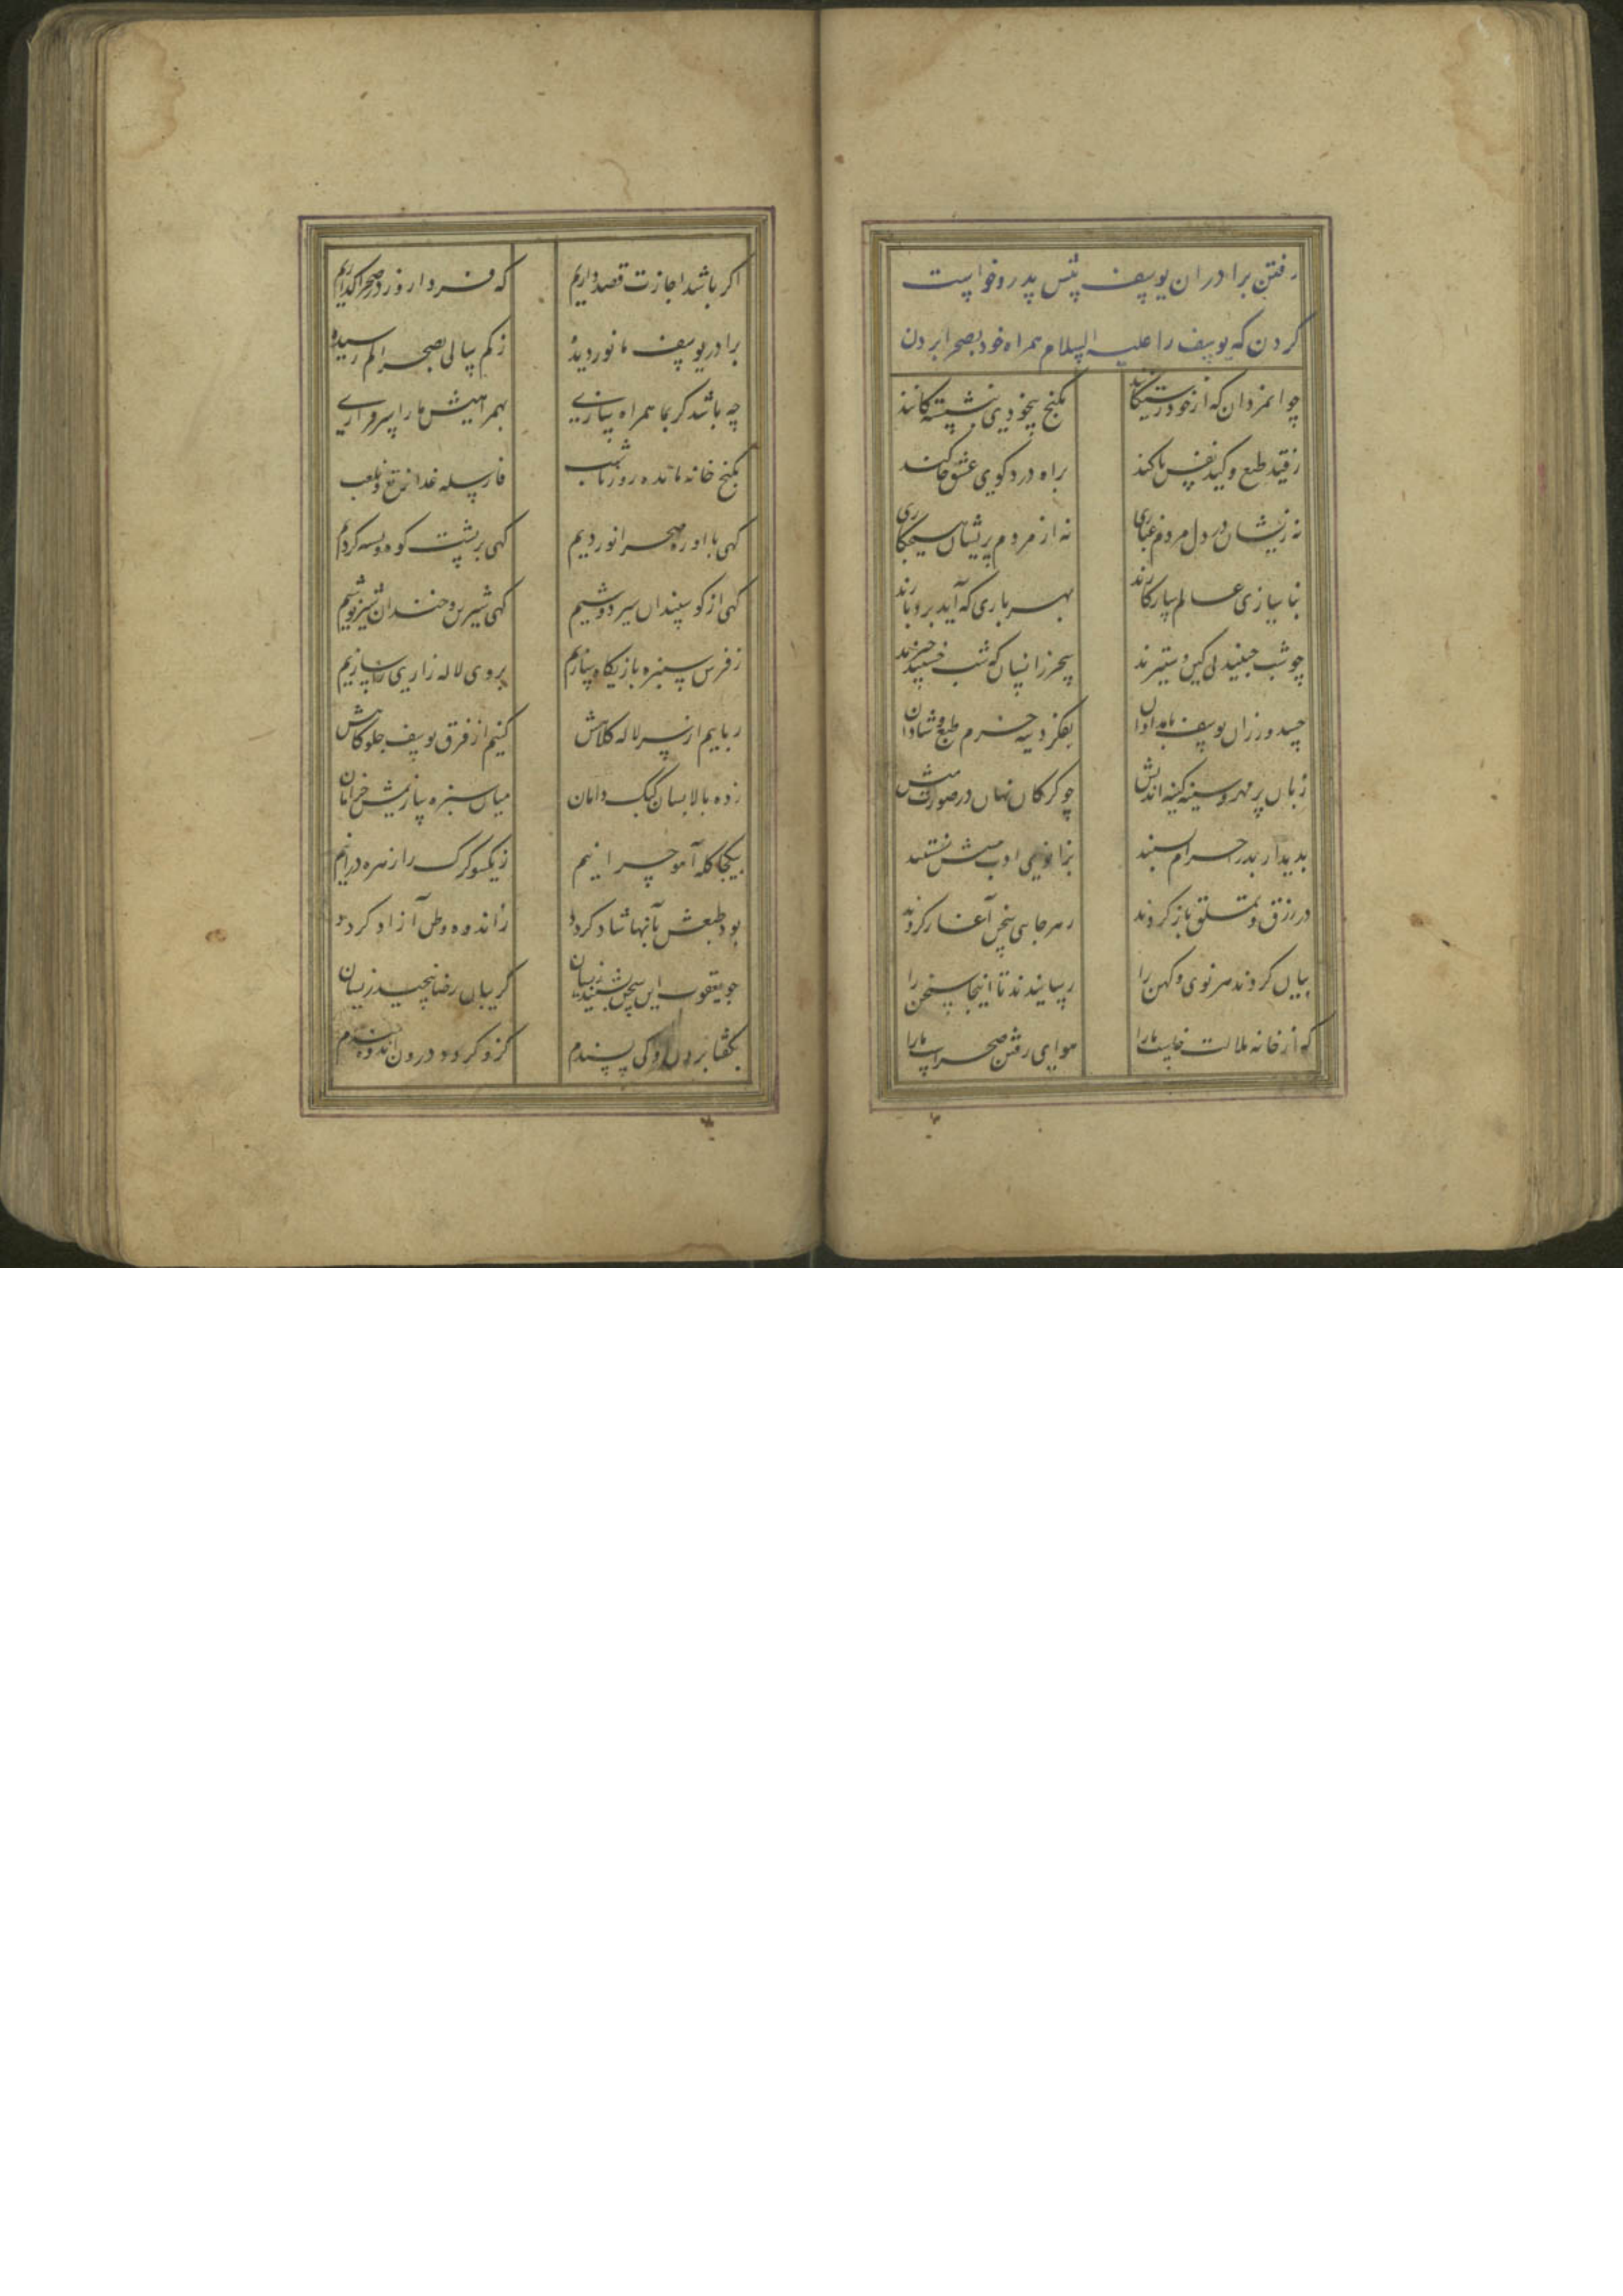 رفتن برادران یوسف پیش پدر و خواست
کردن که یوسف را علیه السلام همراه خود بصحرا بردن
جوانمردان که از خود رستکانند بکنج بیخودی بنشستکانند
ز قید طبع و کید نفس پاکند براه درد و کوی عشق خاکند
نه زیشان در دل مردم غباری نه از مردم بر یشان هیچ باری
بناسازی عالم سازکارند بهر باری که آید بردبارند
چو شب خسپند بی کین و ستیزند سحر زانسان که شب خسپند خیزند
حسدورزان یوسف بامدادان بفکر دینه خرم طبع و شادان
زبان پر مهر و سینه کینه اندیش چو کرکان نهان در صورت میش
بدیدار پدر احرام بستند بزانوی ادب پیشش نشستند
در رزق و تملق باز کردند ز هر جایی سخن آغاز کردند
بیان کردند هر نوی و کهن را رسانیدند تا اینجا سخن را
که از خانه ملالت خاست ما را هوای رفتن صحراست ما را
اکر باشد اجازت قصد داریم که فردا روز در صحرا کذاریم
برادر یوسف ما نور دیده ز کم سالی بصحرا کم رسیده
چه باشد کر بما همراه سازی بهمراهیش ما را سرفرازی
بکنج خانه مانده روز تا شب فارسله غدا نرتع و نلعب
کهی با او ره صحرا نوردیم کهی بر پشت کوه و پسته کردیم
کهی از کوسپندان شیر دوشیم کهی شیرین و خندان شیر نوشیم
ز فرش سبزه بازیکاه سازیم بروی لاله زاری
رباییم از سر لاله کلاهش کنیم از فرق یوسف جلوه کاهش
زده بالا بسان کبک دامان میان سبزه سازیمش خرامان
بیکجا کله آهو چرانیم ز یکسو کرک را زهره درانیم
بود طبعش بآنها شاد کردد ز اندوه وطن آزاد کردد
چو یعقوب این سخن بشنید زیشان کریبان رضا پیچید زیشان
بکفتا بردن او کی پسندم کزو کردد درون اندوه مندم